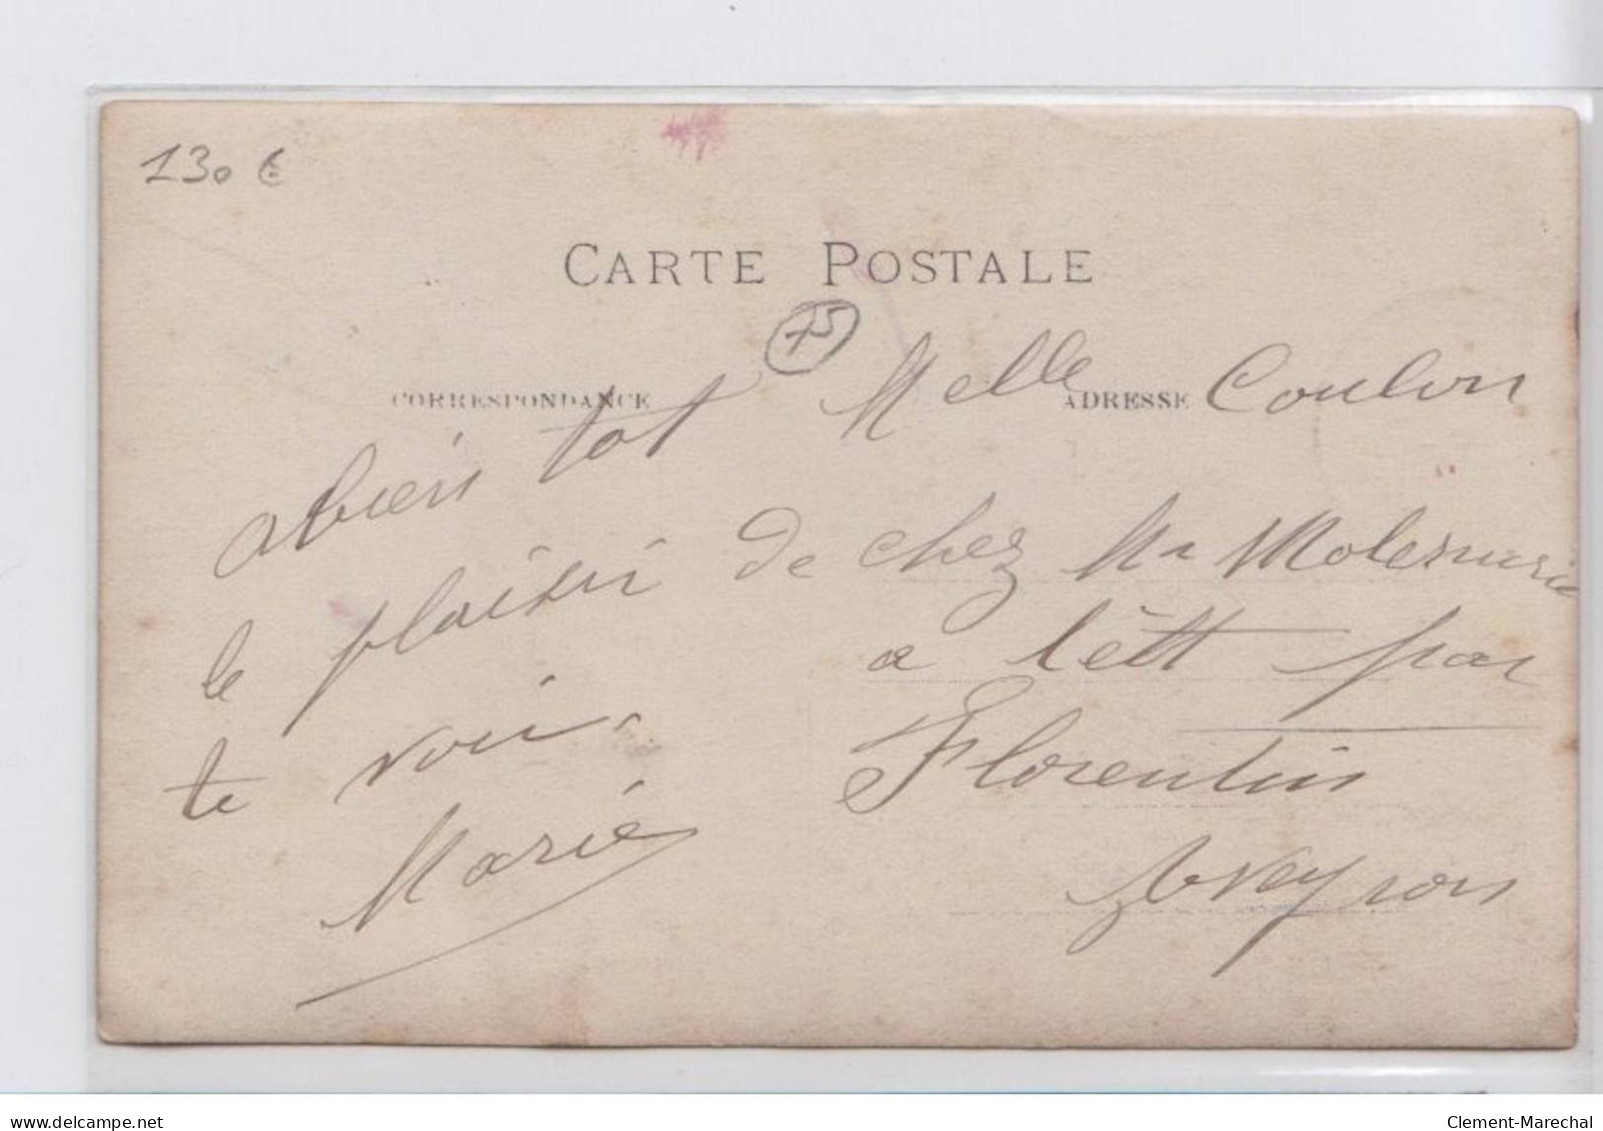 130 €
CARTE POSTALE
75
CORRESPONDANCE
ADRESSE
abien tot
le plaisir de
te voir.
Marie
Melle Coulon
chez Mr
a par
Florentin
Aveyron
www.delcampe.net
Clement-Marechal